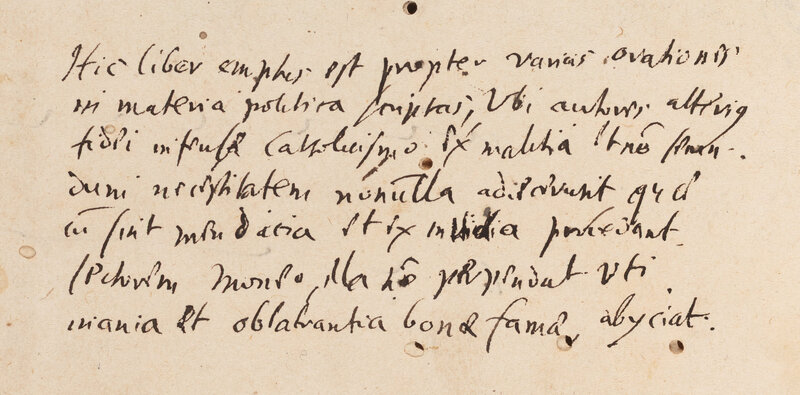 Hic liber emptus est propter varias orationes
in materia politica scriptas, Ubi autores alterius
fidei infensæ Cattolicismo ex malitia et nō secun-
dum necessitatem nōnulla adiecerunt quæ
cū sint mendacia et ex invidia procedant
lectorem moneo, illa nō perpendat uti
inania et oblatrantia bonæ famæ, abyciat.